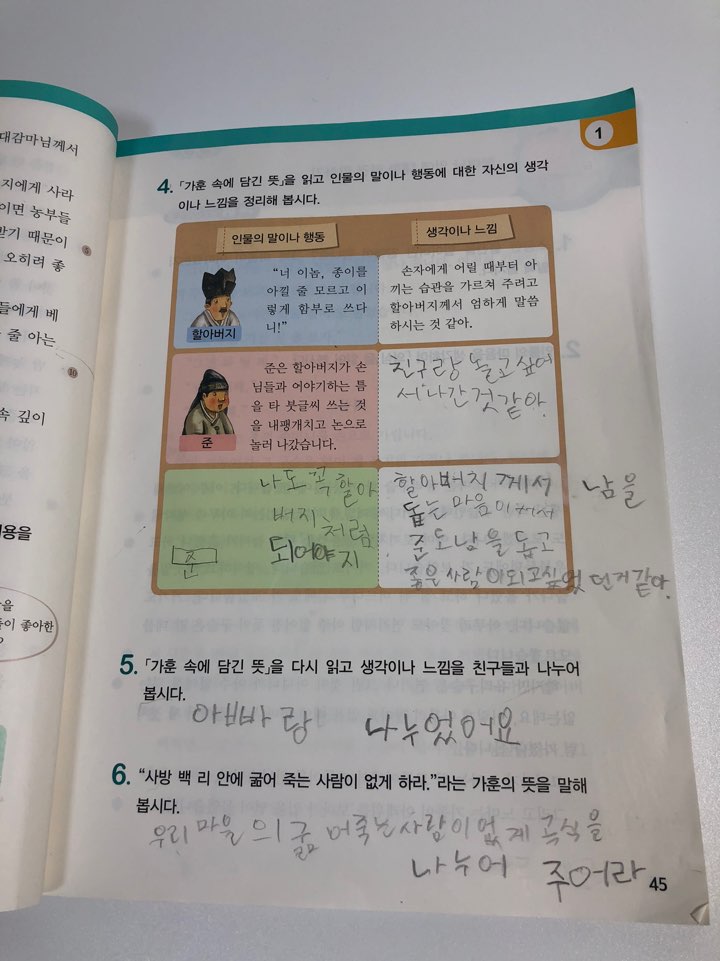 대감마님께서
지에게 사라
이면 농부들
받기 때문이
오히려 좋
들에게 베
줄 아는
속 깊이
용을
을
이 좋아한
?
5
10
1
4. 「가훈 속에 담긴 뜻」을 읽고 인물의 말이나 행동에 대한 자신의 생각
이나 느낌을 정리해 봅시다.
인물의 말이나 행동
생각이나 느낌
할아버지
“너 이놈, 종이를
아낄 줄 모르고 이
렇게 함부로 쓰다
니!”
손자에게 어릴 때부터 아
끼는 습관을 가르쳐 주려고
할아버지께서 엄하게 말씀
하시는 것 같아.
준
준은 할아버지가 손
님들과 이야기하는 틈
을 타 붓글씨 쓰는 것
을 내팽개치고 논으로
놀러 나갔습니다.
친구랑 놀고싶어
서 나간것 같아.
준
나도 꼭 할아
버지처럼
되어야지
할아버지께서 남을
돕는마음이커서
준도남을 돕고
좋은사람이되고싶었던거같아.
5. 「가훈 속에 담긴 뜻」을 다시 읽고 생각이나 느낌을 친구들과 나누어
봅시다.
아빠랑 나누었어요
6. “사방 백 리 안에 굶어 죽는 사람이 없게 하라.”라는 가훈의 뜻을 말해
봅시다.
우리 마을의굶어죽는사람이없게 곡식을
나누어 주어라
45